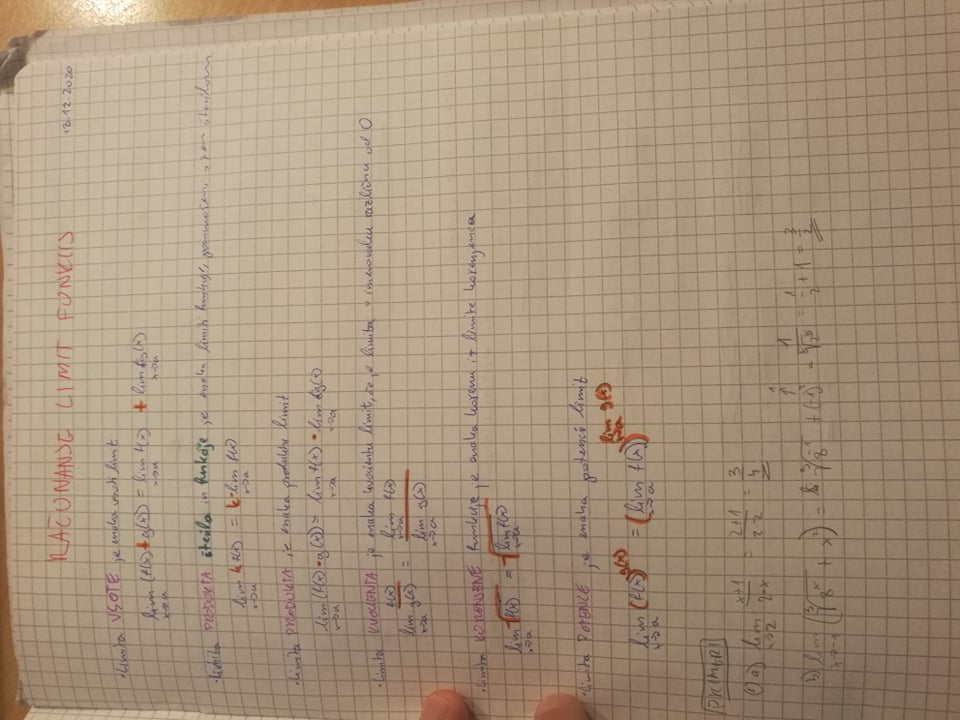 RAČUNANJE LIMIT FUNKCIJ 12.12.2020
• Limita VSOTE je enaka vsoti limit
lim (f(x) + g(x)) = lim f(x) + lim g(x)
x→a x→a x→a
• Limita PRODUKTA števila in funkcije, je enaka limiti funkcije, pomnoženi s tem številom
lim k f(x) = k · lim f(x)
x→a x→a
• Limita PRODUKTA je enaka produktu limit
lim (f(x) · g(x)) = lim f(x) · lim g(x)
x→a x→a x→a
• Limita KVOCIENTA je enaka kvocientu limit, če je limita v imenovalcu različna od 0
lim f(x)/g(x) = lim f(x) / lim g(x)
x→a x→a x→a
• Limita KORENJENE funkcije je enaka korenu iz limite korenjenca
lim √f(x) = √lim f(x)
x→a x→a
• Limita POTENCE je enaka potenci limit
lim (f(x))^g(x) = (lim f(x))^lim g(x)
x→a x→a x→a
PRIMERI
① a) lim x+1/2x = 2+1/2·2 = 3/4
x→2
b) lim (³√8^x + x²) = ³√8^-1 + (-1)² = 1/³√8 + 1 = 1/2 + 1 = 3/2
x→-1